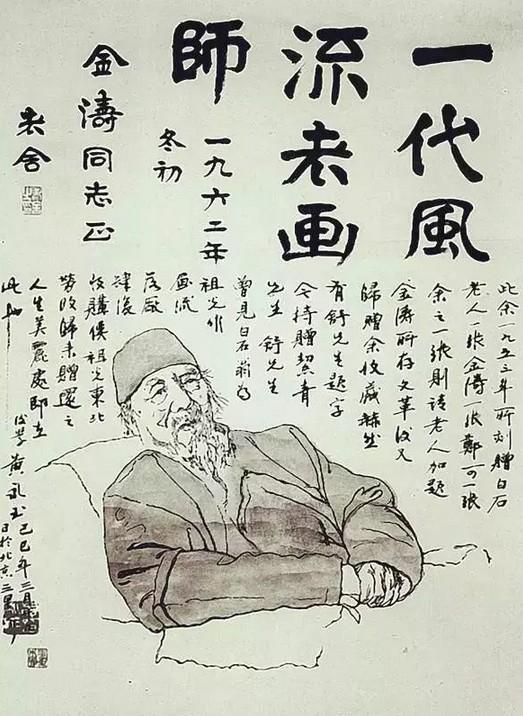 一代風
流老画
師
一九六二年
冬初
金濤同志正
老舍
此余一九五三年所刻贈白石
老人一張金濤一張鄭可一張
余之一張則請老人加題
金濤所存文革後又
歸贈余收藏赫然
有舒先生題字
今持贈絜青
先生 舒先生
曾見白石翁为
祖光作
画流
落廠
肆後
收購俟祖光東北
勞改歸來贈還之
人生美麗處即在
此也
後學 黄永玉 己巳年三月
日於北京三里